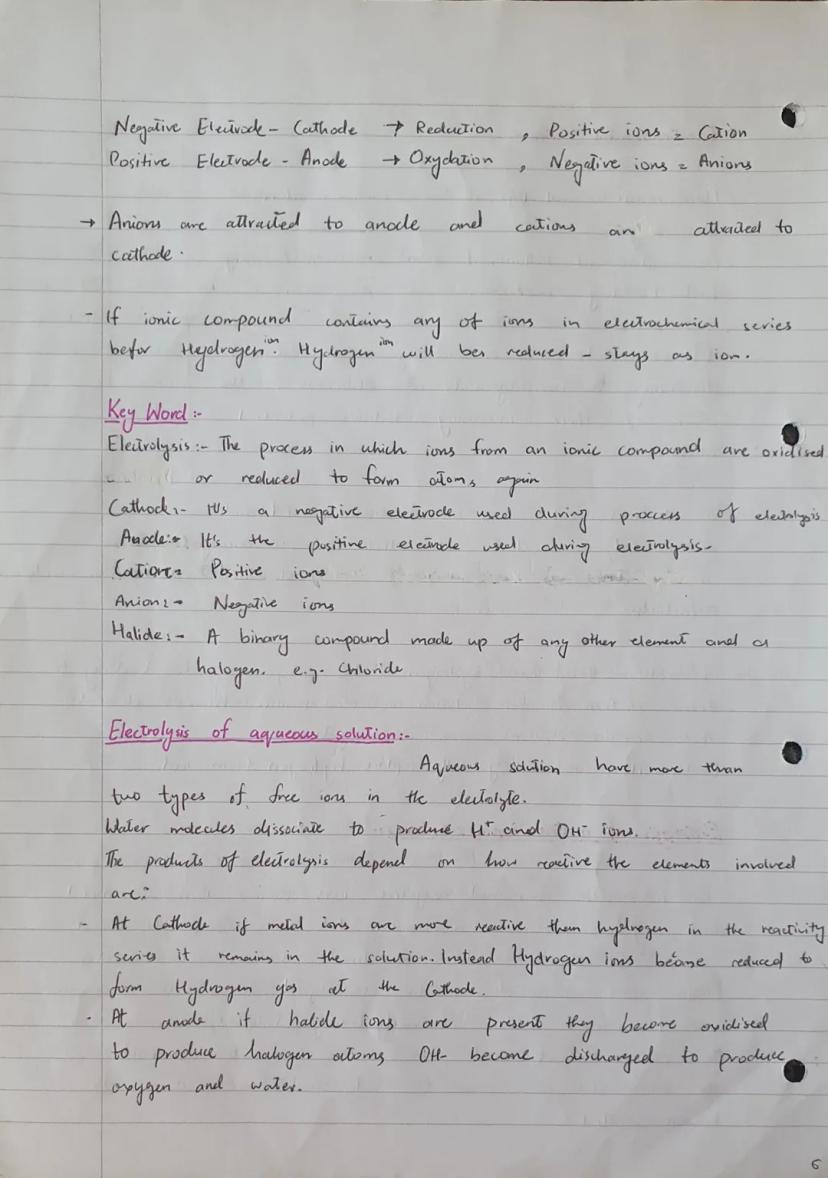 Negative Electrode - Cathode → Reduction , Positive ions = Cation
Positive Electrode - Anode → Oxydation , Negative ions = Anions
→ Anions are attracted to anode and cations an attracted to
cathode.
- If ionic compound contains any of ions in electrochemical series
befor Heydrogen ion. Hydrogen ion will ber reduced - stays as ion.
Key Word :-
Electrolysis :- The process in which ions from an ionic compound are oxidised
or reduced to form atoms again
Cathode :- It's a negative electrode used during process of electrolysis
Anode :- It's the positive electrode used during electrolysis.
Cation :- Positive ions
Anion :- Negative ions
Halide :- A binary compound made up of any other element and a
halogen. e.g. Chloride
Electrolysis of aqueous solution :-
Aqueous solution have more than
two types of free ions in the electrolyte.
Water molecules dissociate to produce H+ and OH- ions.
The products of electrolysis depend on how reactive the elements involved
are:
- At Cathode if metal ions are more reactive then hydrogen in the reactivity
series it remains in the solution. Instead Hydrogen ions became reduced to
form Hydrogen gas at the Cathode.
- At anode if halide ions are present they become oxidised
to produce halogen atoms OH- become discharged to produce
oxygen and water.
6